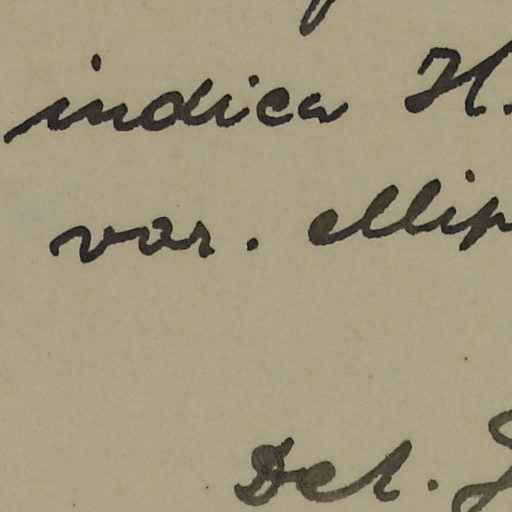 indica H.
var. ellip
Det.